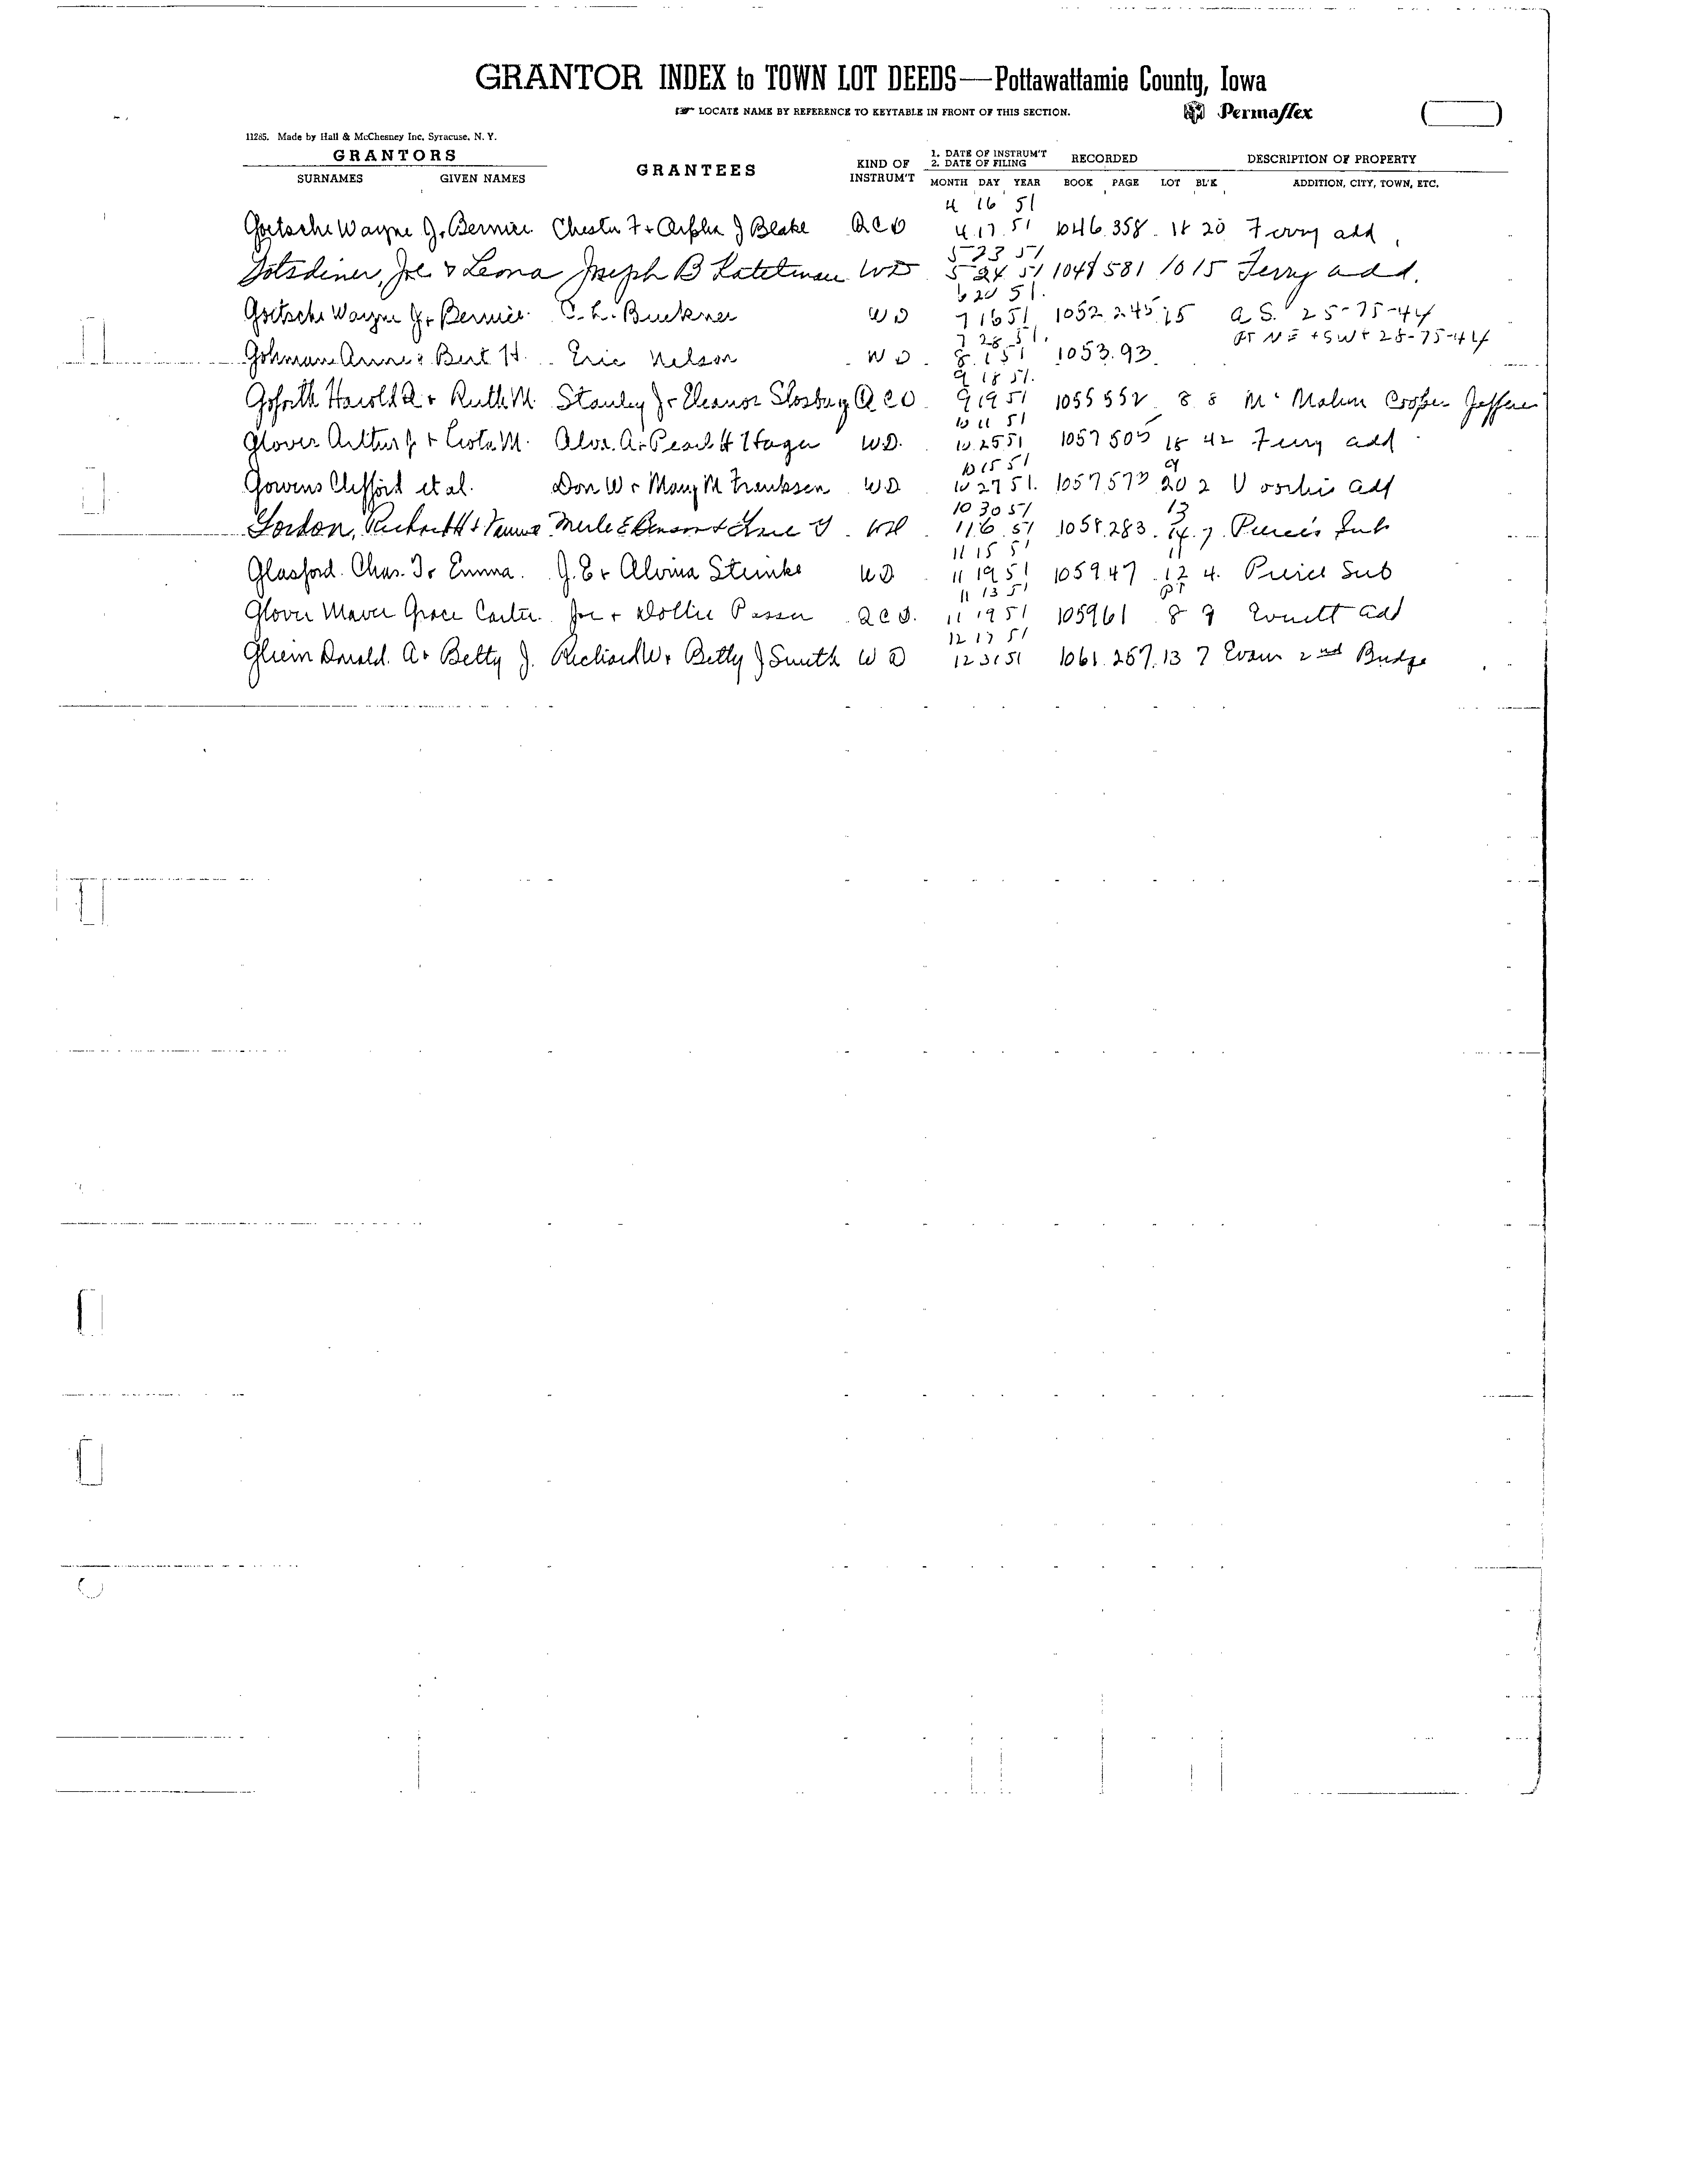 GRANTOR INDEX to TOWN LOT DEEDS—Pottawattamie County, Iowa
LOCATE NAME BY REFERENCE TO KEYTABLE IN FRONT OF THIS SECTION. Permaflex
11285. Made by Hall & McChesney Inc. Syracuse, N. Y.
GRANTORS GRANTEES KIND OF INSTRUM'T 1. DATE OF INSTRUM'T 2. DATE OF FILING RECORDED DESCRIPTION OF PROPERTY
SURNAMES GIVEN NAMES MONTH DAY YEAR BOOK PAGE LOT BL'K ADDITION, CITY, TOWN, ETC.
4 16 51
Goetsche Wayne J. + Bernice Chester F + J Blake QCD 4 17 51 1046 358 18 20 Ferry add
5 23 51
Gotsdiner, Joe & Leona Joseph B Katelman WD 5 24 51 1048 581 10 15 Ferry add.
6 20 51.
Goetsche Wayne J + Bernice C. L. Buckner WD 7 16 51 1052 245 15 a S. 25-75-44
7 28 51. PT NE + SW+ 25-75-44
Gohman Anne & Bert H. Eric Nelson WD 8 1 51 1053.93
9 18 51.
Goforth Harold A + Ruth M. Stanley J + Eleanor Slosburg QCD 9 19 51 1055 552 8 8 Mc Mahon Cooper
10 11 51
Glover Arthur J + Leota M. Alva A + Pearl H Hagen WD. 10 25 51 1057 505 18 42 Ferry add
10 15 51 19
Gowens Clifford et al. Don W + Mary M Franksen WD 10 27 51. 1057 573 20 2 Voorhis add
10 30 51 13
Gordon, Merle E Benson & WD 11 6 51 1058.283. 14. 7. Pierce's Sub
11 15 51 11
Glasford Chas. T + Emma. J. E + Alvina Steinke WD 11 19 51 1059.47 12 4. Pierce Sub
11 13 51 PT
Glover Maver Grace Carter Joe + Dollie Passer QCD. 11 19 51 1059 61 8 9 Everett add
12 17 51
Gliem Donald A + Betty J. Richard W + Betty J Smith WD 12 31 51 1061.267. 13 7 Evans 2nd Bridge